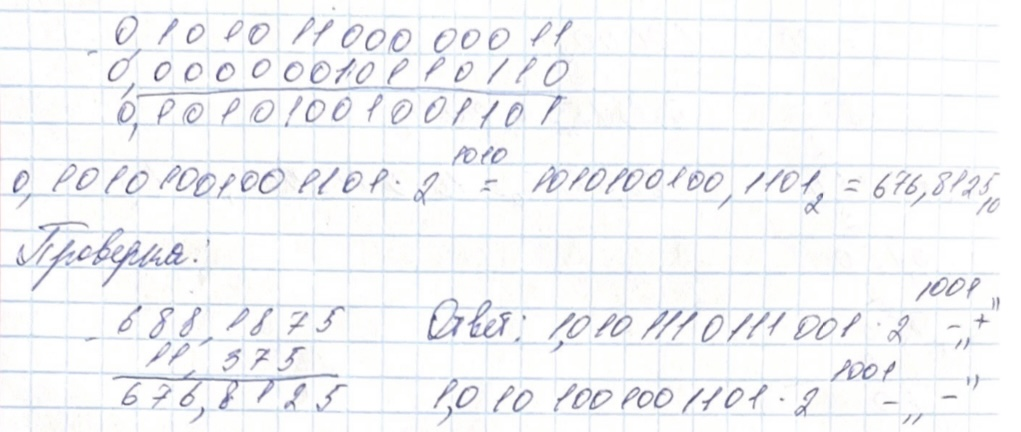 - 0,10101100000011
0,00000010110110
0,10101001001101
0,10101001001101 · 2^1010 = 1010100100,1101₂ = 676,8125₁₀
Проверка:
- 688,1875
11,375
676,8125
Ответ: 1,0101110111001 · 2^1001 - „+"
1,0101001001101 · 2^1001 - „-"